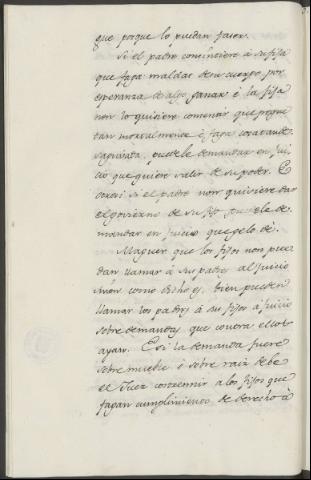 que porque lo puedan facer.
Si el padre comsintiere á su fija
que faga maldat de su cuerpo por
esperanza de algo ganar è la fija
non lo quisiere comentir que pegue
tan mortalmente è faga cosa tan de
saguisada, puedele demandar en jui
cio que quiere salir de su poder. E
otrosi si el padre non quisiere dar
el govierno de su fijo puedele de
mandar en juicio que gelo dé.
Maguer que los fijos non pue
dan llamar à sus padres al juicio
asi como dicho es, bien pueden
llamar los padres à sus fijos à juicio
sobre demandas que contra ellos
ayan. E si la demanda fuere
sobre mueble ò sobre raiz debe
el Juez costrennir a los fijos que
fagan cumplimiento de derecho à